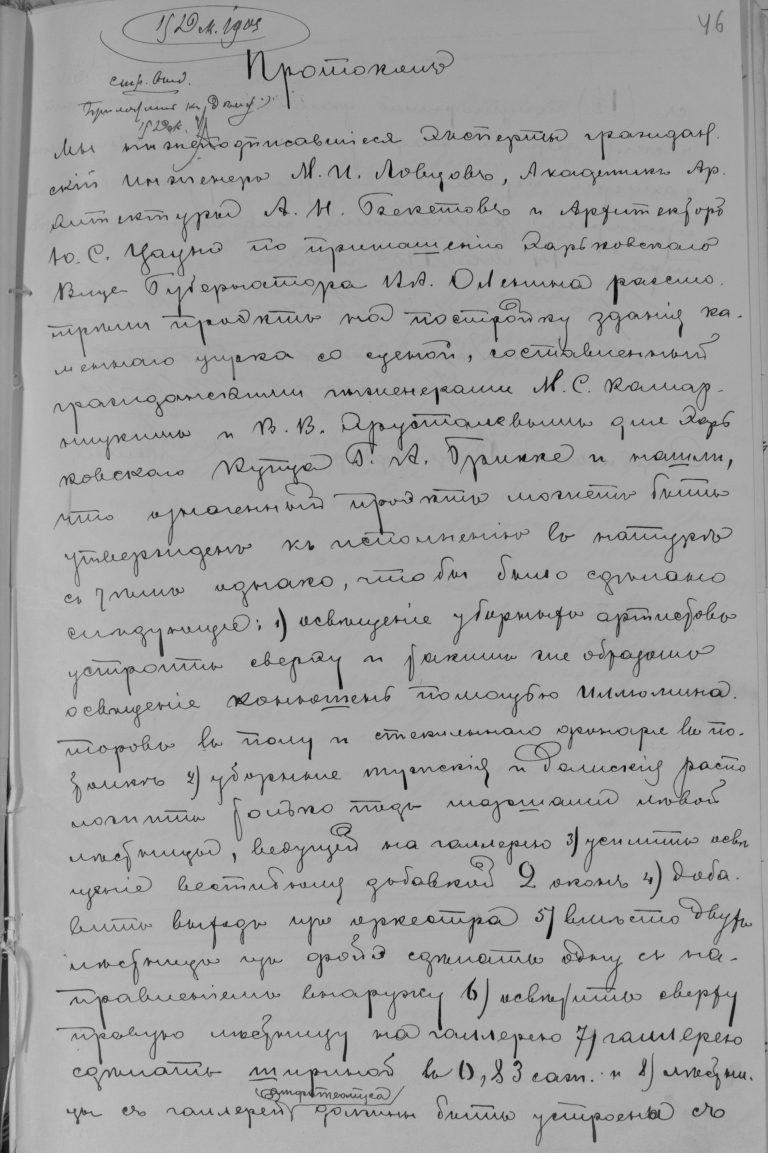 15 Дек. 1905
46
Протоколъ
стр. Отд.
15 Дек.
Мы нижеподписавшіеся эксперты граждан.
скій инженеръ М. И. Ловцовъ, Академикъ Ар.
хитектуры А. Н. Бекетовъ и Архитекторъ
Ю. С. Цауне по приглашенію Харьковскаго
Вице-Губернатора И.А. Оленина разсмо.
трѣли проэктъ на постройку зданія ка-
меннаго цирка со сценой, составленный
гражданскими инженерами М. С. Комар-
ницкимъ и В. В. Хрусталевымъ для Харь
ковскаго Купца Г. А. Грикке и нашли,
что означенный проэктъ можетъ быть
утвержденъ къ исполненію въ натурѣ
съ тѣмъ однако, чтобы было сдѣлано
слѣдующее: 1) освѣщеніе уборныхъ артистовъ
устроить сверху и такимъ же образомъ
освѣщеніе конюшенъ помощью иллюмина.
торовъ въ полу и стекляннаго фонаря въ по-
толкѣ 2) уборныя мужскія и дамскія распо
ложить только подъ маршами лѣвой
лѣстницы, ведущей на галлерею 3) усилить освѣ
щеніе вестибюля добавкой 2 оконъ 4) доба.
вить выходъ изъ оркестра 5) вмѣсто двухъ
лѣстницъ изъ фойэ сдѣлать одну съ на-
правленіемъ внаружу 6) освѣтить сверху
правую лѣстницу на галлерею 7) галлерею
сдѣлать шириной въ 0,83 саж. и 8) лѣстни.
цы съ галлерей амфитеатра должны быть устроены съ